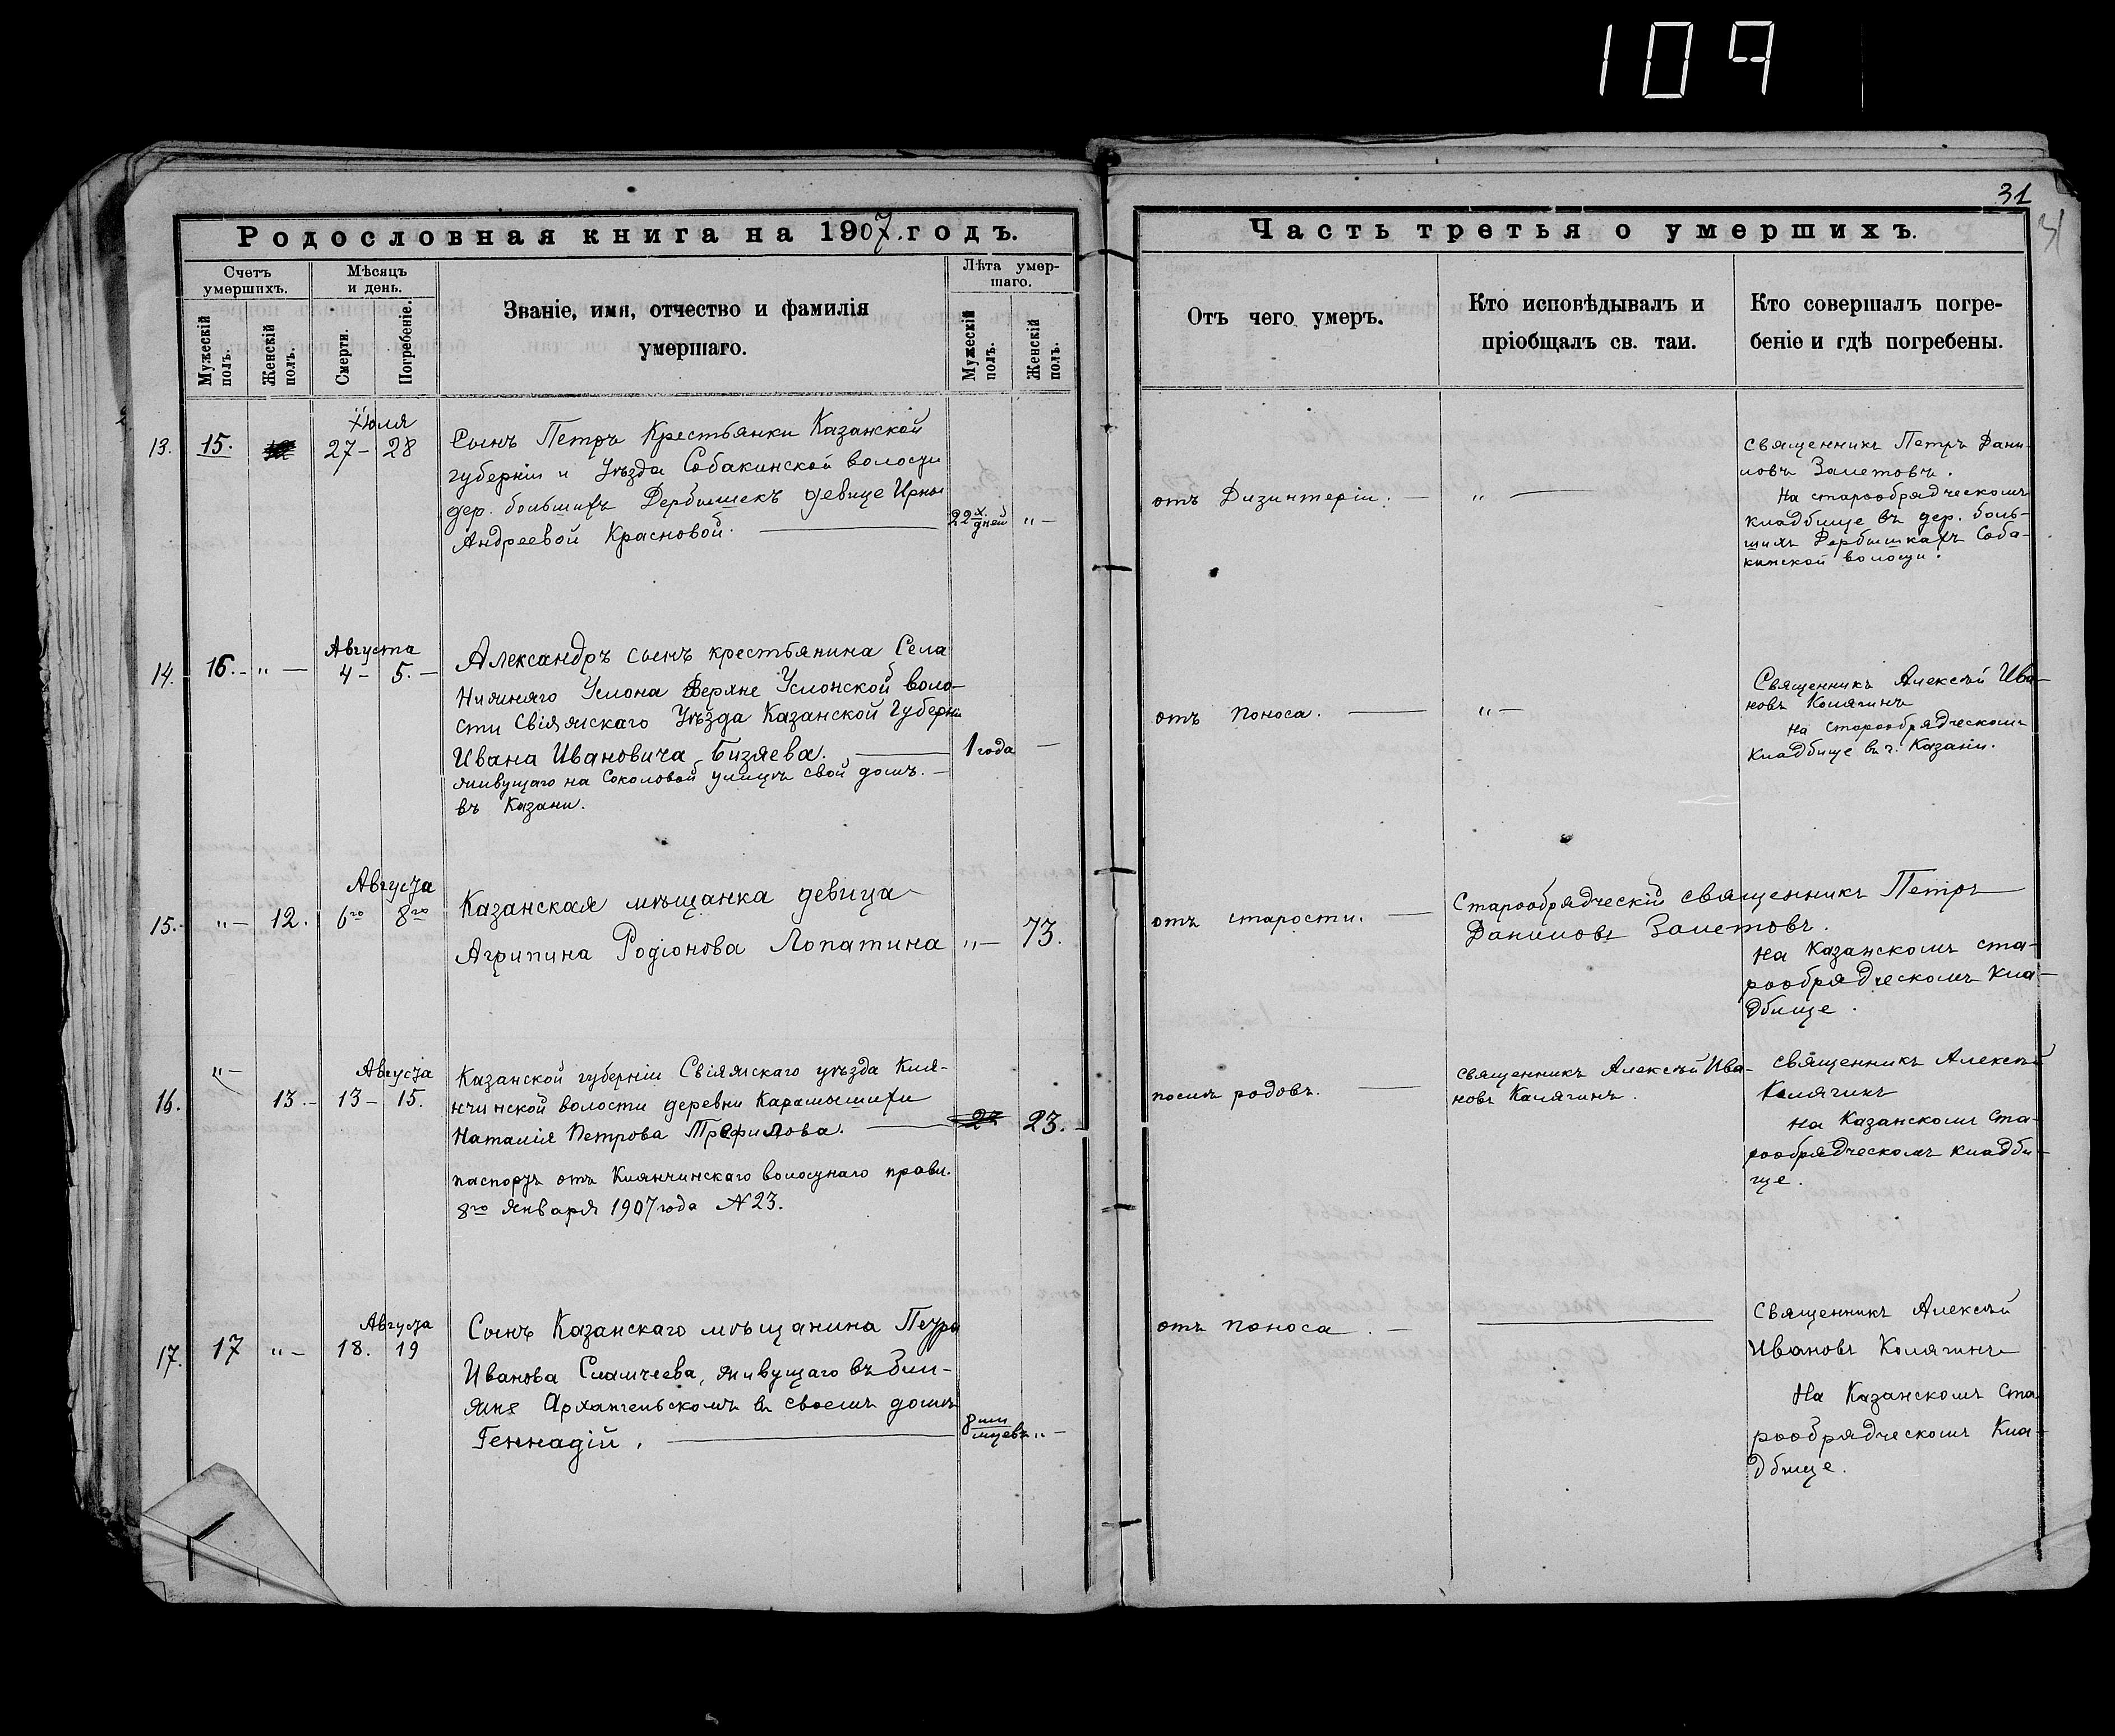 109
31
31
Родословная книга на 1907. годъ.
Счетъ умершихъ.
Мужескій полъ.
Женскій полъ.
Мѣсяцъ и день.
Смерти.
Погребеніе.
Званіе, имя, отчество и фамилія
умершаго.
Лѣта умер-
шаго.
Мужескій полъ.
Женскій полъ.
Часть третья о умершихъ.
Отъ чего умеръ.
Кто исповѣдывалъ и
пріобщалъ св. таи.
Кто совершалъ погре-
беніе и гдѣ погребены.
Іюля
13. 15. 27 - 28
Сынъ Петръ Крестьянки Казанской
губерніи и Уѣзда Собакинской волости
дер. большихъ Дербышекъ девице Ирны
Андреевой Красновой.
22х дней " -
отъ Дизинтеріи. - " -
Священникъ Петръ Дани-
ловъ Залетовъ.
На старообрядческомъ
кладбище въ дер. боль-
шихъ Дербышкахъ Соба-
кинской волости.
Августа
14. 16. - " - 4 - 5. -
Александръ сынъ крестьянина Села
Нижняго Услона Верхне Услонской воло-
сти Свіяжскаго Уѣзда Казанской Губерни
Ивана Ивановича Бизяева.
живущаго на Соколовой улицѣ свой домъ. -
въ Казани.
1 года -
отъ поноса. - " -
Священникъ Алексѣй Ива-
новъ Калягинъ
На Старообрядческомъ
Кладбище въ г. Казани.
Августа
15. - " - 12. 6го 8го
Казанская мѣщанка девица
Агрипина Родіонова Лопатина
" - 73.
отъ старости. -
Старообрядческій священникъ Петръ
Даниловъ Залетовъ.
на Казанскомъ ста-
рообрядческомъ кла-
дбище.
" -
Августа
16. 13. - 13 - 15.
Казанской губерніи Свіяжскаго уѣзда Кля-
нчинской волости деревни Карамышихи
Наталія Петрова Трефилова.
паспортъ отъ Клянчинскаго волостнаго правл.
8го Января 1907 года N 23.
23.
послѣ родовъ. -
священникъ Алексѣй Ива-
новъ Калягинъ.
священникъ Алексѣй
Калягинъ
на Казанскомъ ста-
рообрядческомъ кладби-
ще.
Августа
17. 17 " - 18. 19
Сынъ Казанскаго мѣщанина Петра
Иванова Сламчеева, живущаго въ бли-
жне Архангельскомъ въ своемъ домѣ
Геннадій.
8ми мцевъ " -
отъ поноса. -
Священникъ Алексѣй
Ивановъ Калягинъ
На Казанскомъ Ста-
рообрядческомъ Кла-
дбище.